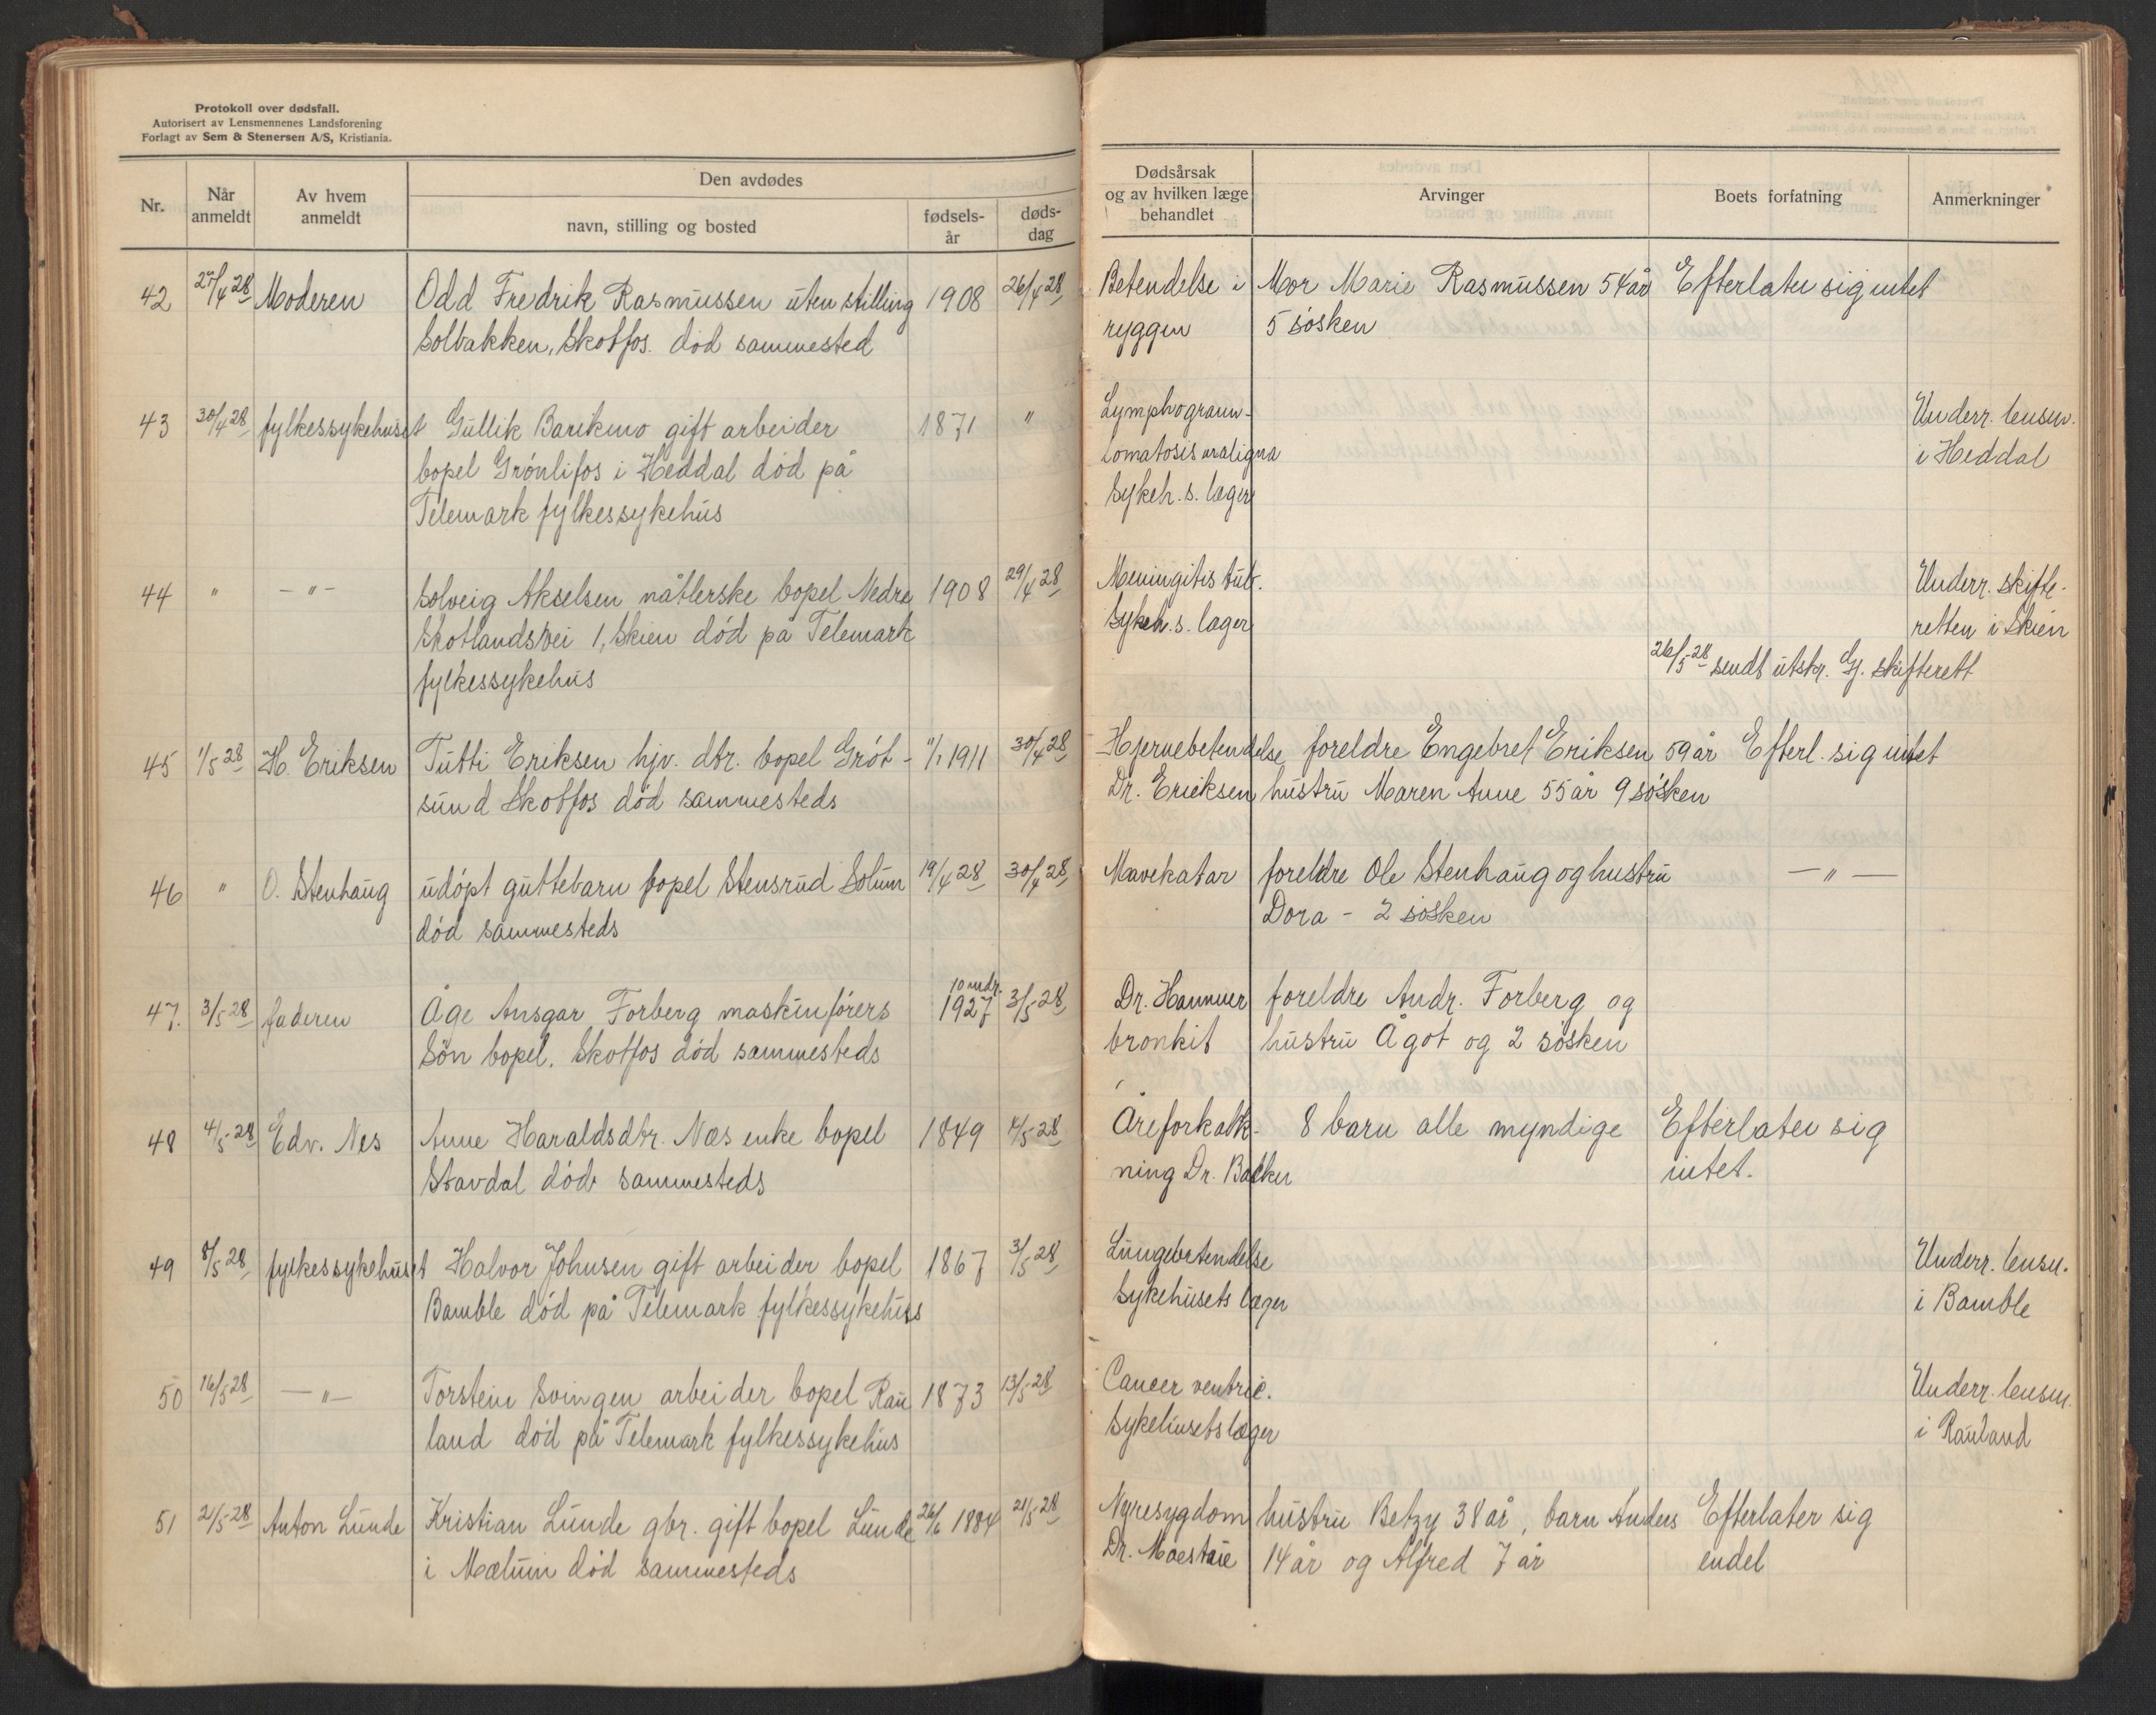 Protokoll over dødsfall.
Autorisert av Lensmennenes Landsforening
Forlagt av Sem & Stenersen A/S, Kristiania.
Nr.
Når anmeldt
Av hvem anmeldt
Den avdødes
navn, stilling og bosted
fødsels-år
døds-dag
Dødsårsak
og av hvilken læge
behandlet
Arvinger
Boets forfatning
Anmerkninger
42 27/4 28 Moderen Odd Fredrik Rasmussen uten stilling 1908 26/4 28 Betendelse i Mor Marie Rasmussen 54 år Efterlater sig intet
Solbakken, Skotfos. död sammested ryggen 5 søsken
43 30/4 28 fylkessykehuset Gullik Barikmo gift arbeider 1871 " Lymphogranu- Underr. lensm.
bopel Grönlifos i Heddal död på lomatosis maligna i Heddal
Telemark fylkessykehus Sykeh. s. læger
44 " - " - Solveig Akselsen nåtlerske bopel Nedre 1908 29/4 28 Meningitis tub. Underr. skifte-
Skotlandsvei 1, Skien död på Telemark Sykeh. s. læger retten i Skien
fylkessykehus 26/5 28 sendt utskr. Gj. skifterett
45 1/5 28 H. Eriksen Tutti Eriksen hjv. dtr. bopel Gröt- 11/1 1911 30/4 28 Hjernebetendelse foreldre Engebret Eriksen 59 år Efterl. sig intet
sund Skotfos död sammesteds Dr. Ericksen hustru Maren Anne 55 år 9 søsken
46 " O. Stenhaug udöpt guttebarn bopel Stensrud Solum 19/4 28 30/4 28 Mavekatar foreldre Ole Stenhaug og hustru - " -
död sammesteds Dora - 2 søsken
47. 3/5 28 faderen Åge Ansgar Forberg maskinförers 10 mdr. 1927 3/5 28 Dr. Hammer foreldre Andr. Forberg og
Sön bopel. Skotfos död sammesteds bronkit hustru Ågot og 2 søsken
48 4/5 28 Edv. Nes Anne Haraldsdtr. Næs enke bopel 1849 4/5 28 Åreforkalk- 8 barn alle myndige Efterlater sig
Stavdal död sammesteds ning Dr. Backer intet.
49 8/5 28 fylkessykehuset Halvor Johnsen gift arbeider bopel 1867 3/5 28 Lungebetendelse Underr. lensm.
Bamble död på Telemark fylkessykehus Sykehusets læger i Bamble
50 16/5 28 - " - Torstein Svingen arbeider bopel Rau 1873 13/5 28 Cancer ventric. Underr. lensm.
land död på Telemark fylkessykehus Sykehusets læger i Rauland
51 21/5 28 Anton Lunde Kristian Lunde gbr. gift bopel Lunde 26/6 1884 21/5 28 Nyresygdom hustru Betzy 38 år, barn Anders Efterlater sig
i Mælum död sammesteds Dr. 14 år og Alfred 7 år endel